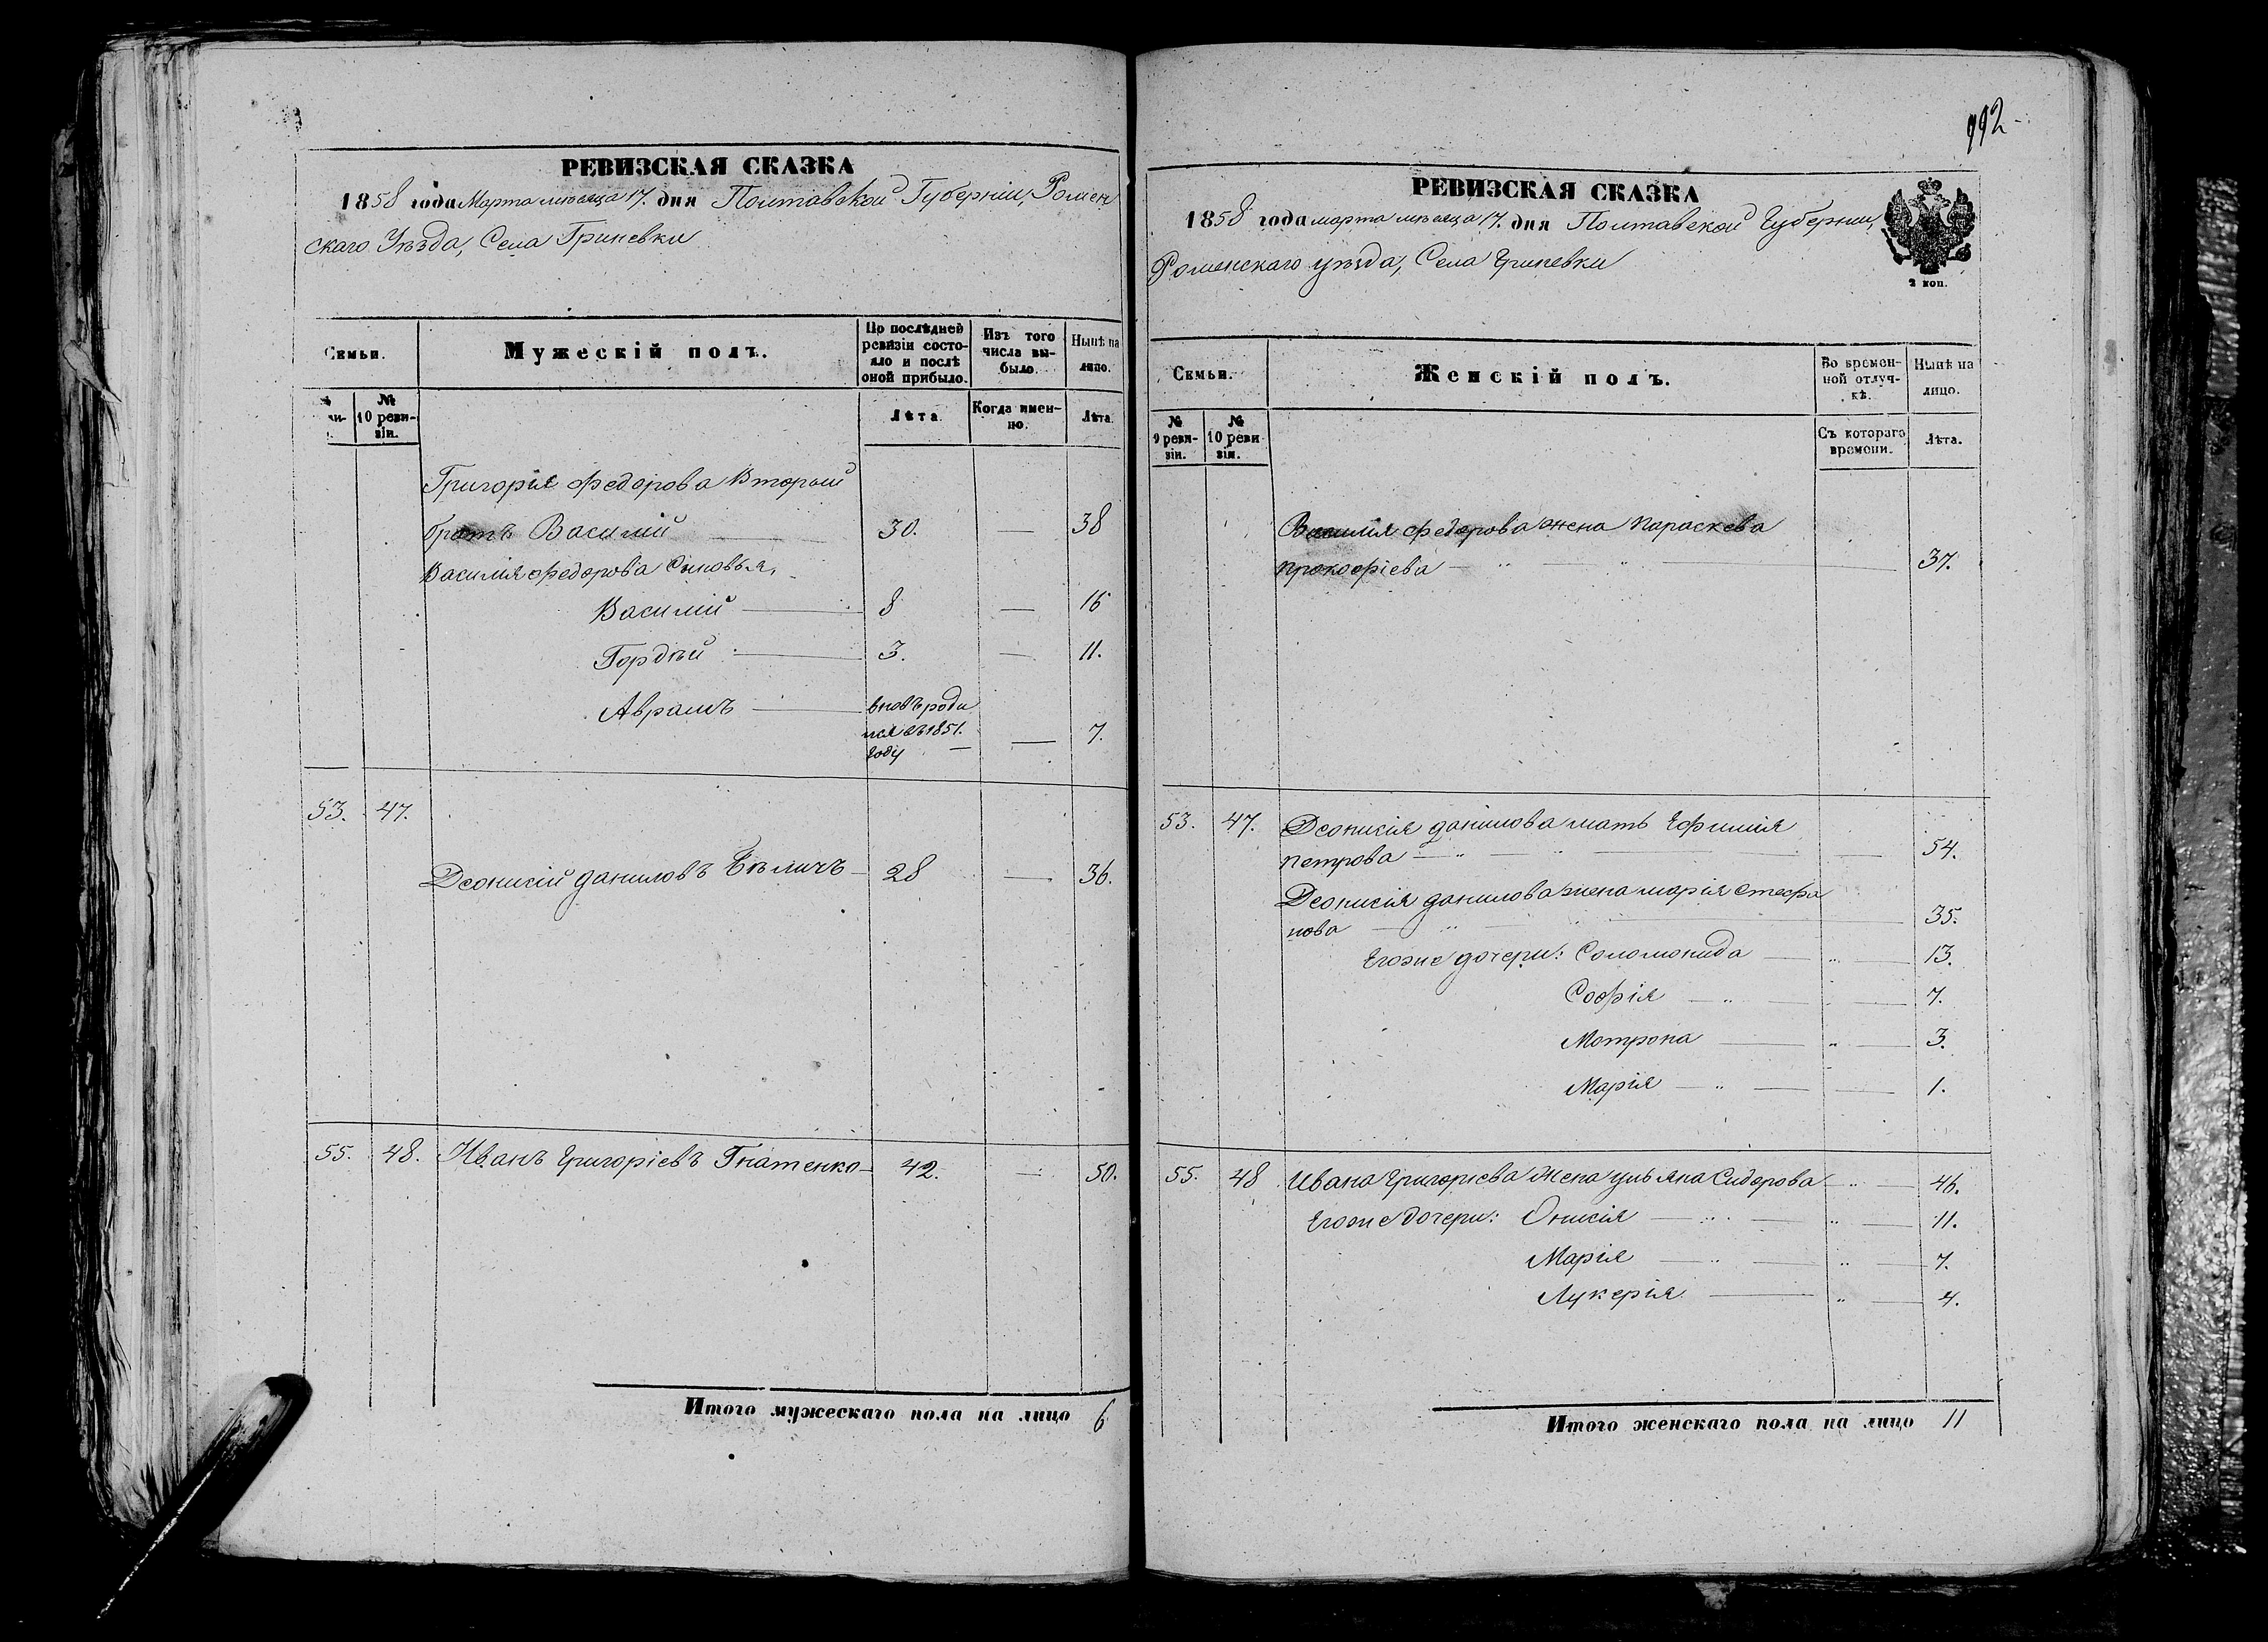 РЕВИЗСКАЯ СКАЗКА
1858 года Марта мѣсяца 17. дня Полтавской Губерніи, Ромен
скаго Уѣзда, Села Гриневки
Семьи.
Мужескій полъ.
По послѣдней ревизіи состояло и послѣ оной прибыло.
Изъ того числа выбыло.
Нынѣ на лицо.
№ 10 ревизіи.
Лѣта.
Когда именно.
Лѣта.
Григорія Федорова Вторый
братъ Василій 30. — 38
Василія Федорова Сыновья,
Василій 8 — 16
Гордѣй 3. — 11.
Аврамъ вновь роди
лся въ 1851.
году — — 7.
53. 47.
Деонисій Даниловъ Бѣличъ 28 — 36.
55. 48. Иванъ Григоріевъ Гнатенко 42. — 50.
Итого мужескаго пола на лицо 6
992
РЕВИЗСКАЯ СКАЗКА
1858 года марта мѣсяца 17. дня Полтавской Губерніи,
Роменскаго уѣзда, Села Гриневки
2 коп.
Семьи.
Женскій полъ.
Во временной отлучкѣ.
Нынѣ на лицо.
№ 9 ревизіи.
№ 10 ревизіи.
Съ котораго времени.
Лѣта.
Василія Федорова жена Параскева
Прокофіева — 37.
53. 47. Деонисія Данилова мать Ефимія
Петрова — 54.
Деонисія Данилова жена Марія Стефа
нова — 35.
Егоже дочери: Соломонида — 13.
Софія — 7.
Мотрона — 3.
Марія — 1.
55. 48 Ивана Григорієва жена Ульяна Сидорова — 46.
Егоже дочери: Онисія — 11.
Марія — 7.
Лукерія — 4.
Итого женскаго пола на лицо 11